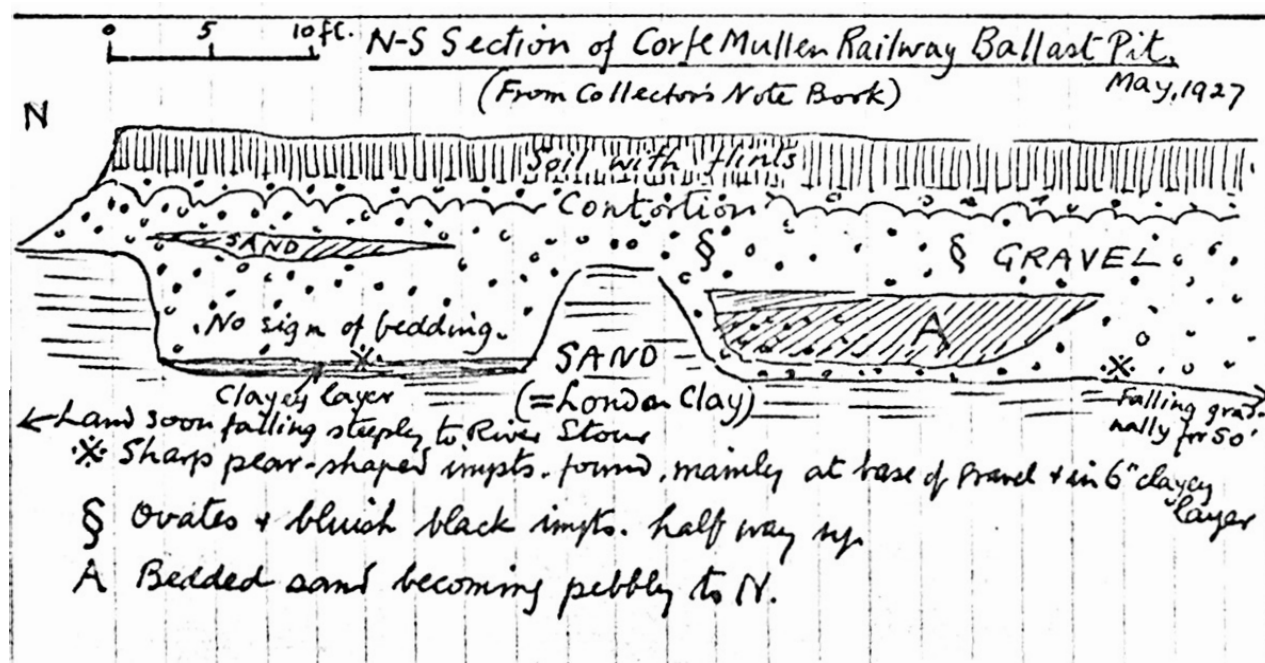 0 5 10 ft.
N-S Section of Corfe Mullen Railway Ballast Pit.
(From Collector's Note Book)
May, 1927
N
Soil with flints
Contortion
SAND
§ § GRAVEL
No sign of bedding.
A
※
SAND
※
Clayey layer
(=London Clay)
Falling grad-
ually for 50'
← Land soon falling steeply to River Stour
※ Sharp pear-shaped impts. found, mainly at base of gravel & in 6" clayey
layer
§ Ovates & bluish black impts. half way up.
A Bedded sand becoming pebbly to N.